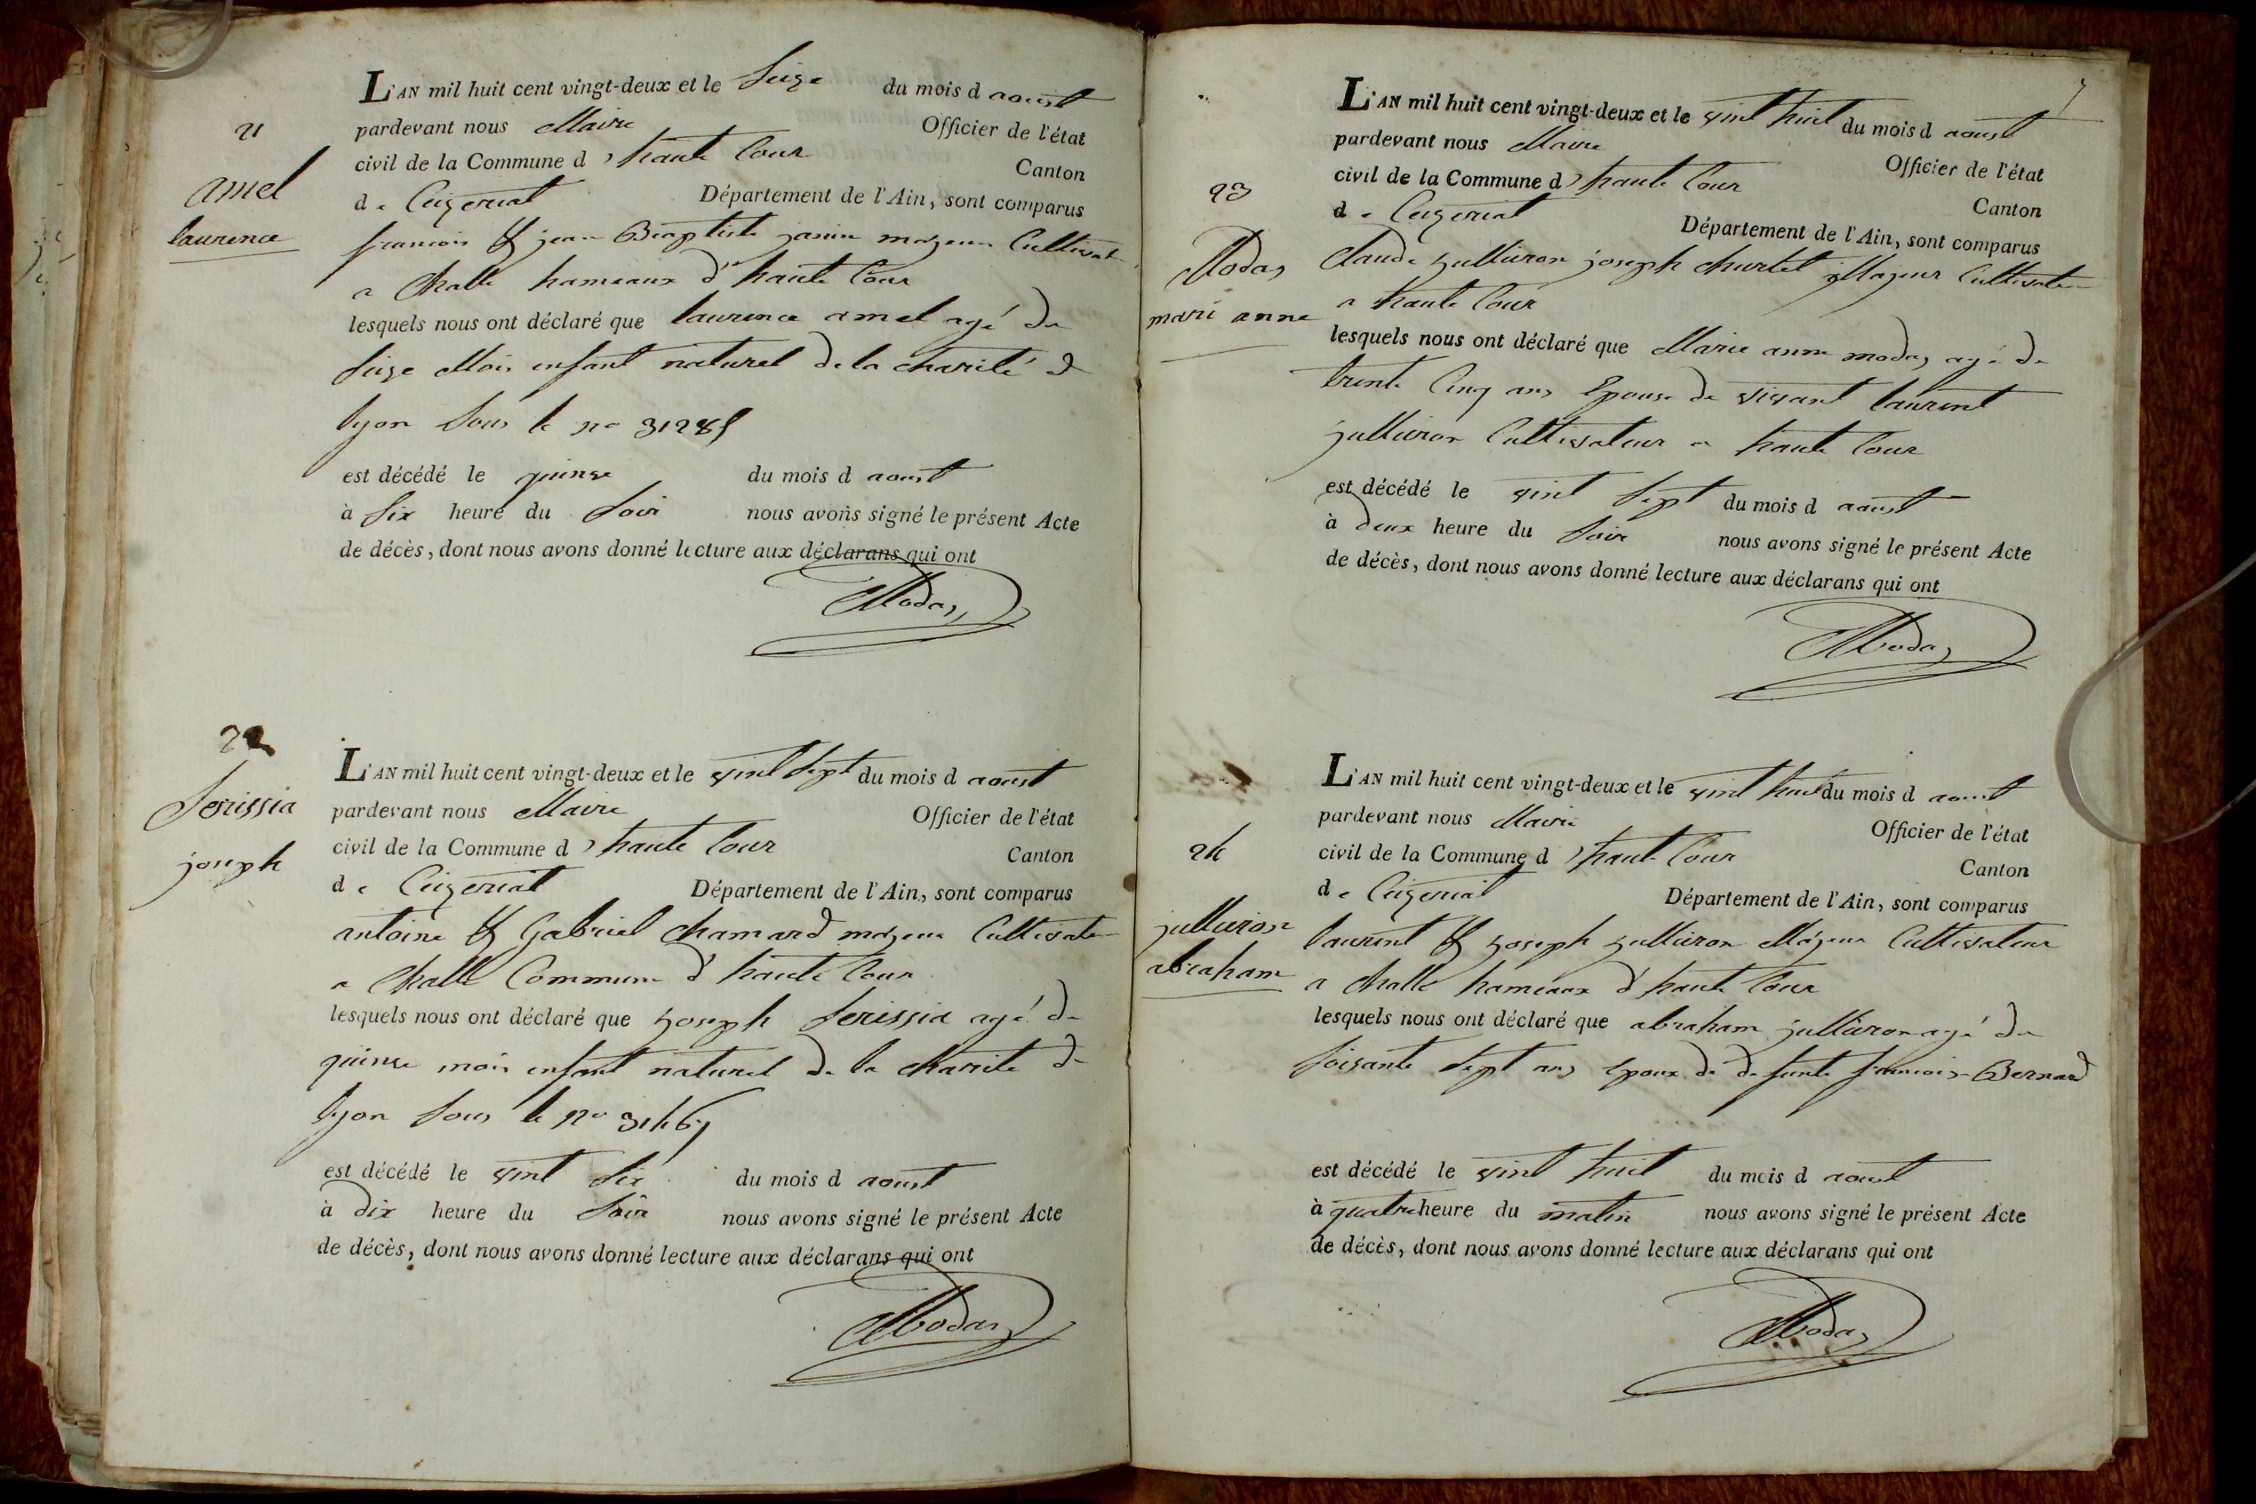 21
amel
laurence
L'AN mil huit cent vingt-deux et le Seize du mois d aoust
pardevant nous Maire Officier de l'état
civil de la Commune d'haute Cour Canton
de Ceizeriat Département de l'Ain, sont comparus
francois & jean Baptiste janin majeur Cultivat
a Challe hameaux d'haute Cour
lesquels nous ont déclaré que laurence amel agé de
Seize Mois enfant naturel de la charité de
lyon Sous le no
est décédé le quinse du mois d aoust
à Six heure du Soir nous avons signé le présent Acte
de décès, dont nous avons donné lecture aux déclarans qui ont
Modas
22
Serissia
joseph
L'AN mil huit cent vingt-deux et le vint Sept du mois d aoust
pardevant nous Maire Officier de l'état
civil de la Commune d'haute Cour Canton
de Ceizeriat Département de l'Ain, sont comparus
antoine & Gabriel Chamard majeur Cultivate
a Challe Commune d'haute Cour
lesquels nous ont déclaré que joseph Serissia agé de
quinse mois enfant naturel de la charité de
lyon Sous le no
est décédé le vint Six du mois d aoust
à dix heure du Soir nous avons signé le présent Acte
de décès, dont nous avons donné lecture aux déclarans qui ont
Modas
7
23
Modas
mari anne
L'AN mil huit cent vingt-deux et le vint huit du mois d aoust
pardevant nous Maire Officier de l'état
civil de la Commune d'haute Cour Canton
de Ceizeriat Département de l'Ain, sont comparus
Claude jullieron joseph churlet Majeur Cultivate
a haute Cour
lesquels nous ont déclaré que Marie anne modas agé de
trente Cinq ans Epouse de vivant laurent
jullieron Cultivateur a haute Cour
est décédé le vint Sept du mois d aoust
à deux heure du Soir nous avons signé le présent Acte
de décès, dont nous avons donné lecture aux déclarans qui ont
Modas
24
jullieron
abraham
L'AN mil huit cent vingt-deux et le vint huit du mois d aoust
pardevant nous Maire Officier de l'état
civil de la Commune d'haute Cour Canton
de Ceizeriat Département de l'Ain, sont comparus
laurent & joseph jullieron Majeur Cultivateur
a Challe hameaux d'haute Cour
lesquels nous ont déclaré que abraham jullieron agé de
Soisante Sept ans epoux de defunte francoise Bernard
est décédé le vint huit du mois d aoust
à quatre heure du matin nous avons signé le présent Acte
de décès, dont nous avons donné lecture aux déclarans qui ont
Modas